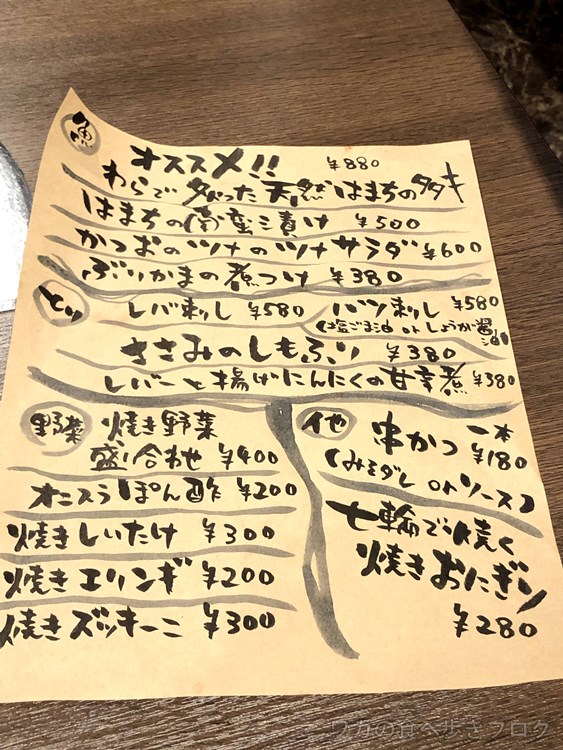 魚
オススメ!! ¥880
わらで炙った天然はまちのタタキ
はまちの南蛮漬け ¥500
かつおのツナのツナサラダ ¥600
ぶりかまの煮つけ ¥380
とり
レバ刺し ¥580 ハツ刺し ¥580
(塩ごま油 or しょうが醤油)
ささみのしもふり ¥380
レバーと揚げにんにくの甘辛煮 ¥380
野菜 焼き野菜
盛り合わせ ¥400
オニスラぽん酢 ¥200
焼きしいたけ ¥300
焼きエリンギ ¥200
焼きズッキーニ ¥300
他 串かつ 一本
¥180
(みそダレ or ソース)
七輪で焼く
焼きおにぎり
¥280
ワカの食べ歩きブログ